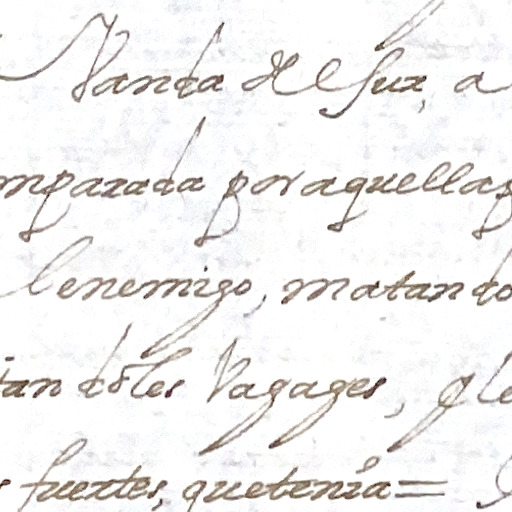 Vanda del Sur, a
mparada por aquellas
lenemigo, matando
tandoles Vagages, q le
s fuertes, que tenia =